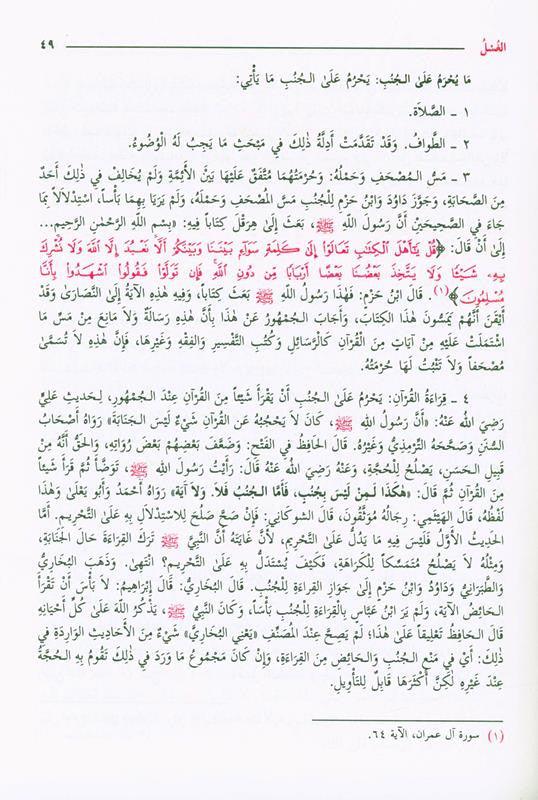 الغُسْلُ ٤٩
مَا يُحْرَمُ عَلَىٰ الـجُنُبِ: يَحْرُمُ عَلَىٰ الـجُنُبِ مَا يَأْتِي:
١ ـ الصَّلَاةُ.
٢ ـ الطَّوافُ. وَقَدْ تَقَدَّمَتْ أَدِلَّةُ ذٰلِكَ فِي مَبْحَثِ مَا يَجِبُ لَهُ الْوُضُوءُ.
٣ ـ مَسُّ الـمُصْحَفِ وَحَمْلُهُ: وَحُرْمَتُهُمَا مُتَّفَقٌ عَلَيْهَا بَيْنَ الأَئِمَّةِ وَلَمْ يُخَالِفْ فِي ذٰلِكَ أَحَدٌ
مِنَ الصَّحَابَةِ، وَجَوَّزَ دَاوُدَ وَابْنُ حَزْمٍ لِلْجُنُبِ مَسَّ الْمُصْحَفِ وَحَمْلَهُ، وَلَمْ يَرَيَا بِهِمَا بَأْساً، اسْتِدْلَالاً بِمَا
جَاءَ فِي الصَّحِيحَيْنِ أَنَّ رَسُولَ اللهِ ﷺ، بَعَثَ إِلَىٰ هِرَقْلَ كِتَاباً فِيهِ: «بِسْمِ اللهِ الرَّحْمٰنِ الرَّحِيمِ...
إِلَىٰ أَنْ قَالَ: ﴿قُلْ يَٰٓأَهْلَ ٱلْكِتَٰبِ تَعَالَوْا۟ إِلَىٰ كَلِمَةٍ سَوَآءٍۭ بَيْنَنَا وَبَيْنَكُمْ أَلَّا نَعْبُدَ إِلَّا ٱللَّهَ وَلَا نُشْرِكَ
بِهِۦ شَيْـًٔا وَلَا يَتَّخِذَ بَعْضُنَا بَعْضًا أَرْبَابًا مِّن دُونِ ٱللَّهِ ۚ فَإِن تَوَلَّوْا۟ فَقُولُوا۟ ٱشْهَدُوا۟ بِأَنَّا
مُسْلِمُونَ﴾(١). قَالَ ابْنُ حَزْمٍ: فَهٰذَا رَسُولُ اللهِ ﷺ بَعَثَ كِتَاباً، وَفِيهِ هٰذِهِ الآيَةُ إِلَىٰ النَّصَارَىٰ، وَقَدْ
أَيْقَنَ أَنَّهُمْ يَمَسُّونَ هٰذَا الكِتَابَ، وَأَجَابَ الـجُمْهُورُ عَنْ هٰذَا بِأَنَّ هٰذِهِ رِسَالَةٌ وَلَا مَانِعَ مِنْ مَسِّ مَا
اشْتَمَلَتْ عَلَيْهِ مِنْ آيَاتٍ مِنَ الْقُرْآنِ كَالرَّسَائِلِ وَكُتُبِ التَّفْسِيرِ وَالفِقْهِ وَغَيْرِهَا، فَإِنَّ هٰذِهِ لَا تُسَمَّىٰ
مُصْحَفاً وَلَا تَثْبُتُ لَهَا حُرْمَتُهُ.
٤ ـ قِرَاءَةُ القُرْآنِ: يَحْرُمُ عَلَىٰ الـجُنُبِ أَنْ يَقْرَأَ شَيْئاً مِنَ القُرْآنِ عِنْدَ الـجُمْهُورِ، لِحَدِيثِ عَلِيٍّ
رَضِيَ اللهُ عَنْهُ: «أَنَّ رَسُولَ اللهِ ﷺ، كَانَ لَا يَحْجُبُهُ عَنِ القُرْآنِ شَيْءٌ لَيْسَ الـجَنَابَةَ» رَوَاهُ أَصْحَابُ
السُّنَنِ وَصَحَّحَهُ التِّرْمِذِيُّ وَغَيْرُهُ. قَالَ الـحَافِظُ فِي الفَتْحِ: وَضَعَّفَ بَعْضُهُمْ بَعْضَ رُوَاتِهِ، وَالـحَقُّ أَنَّهُ مِنْ
قَبِيلِ الـحَسَنِ، يَصْلُحُ لِلْحُجَّةِ، وَعَنْهُ رَضِيَ اللهُ عَنْهُ قَالَ: رَأَيْتُ رَسُولَ اللهِ ﷺ، تَوَضَّأَ ثُمَّ قَرَأَ شَيْئاً
مِنَ القُرْآنِ ثُمَّ قَالَ: «هٰكَذَا لِـمَنْ لَيْسَ بِجُنُبٍ، فَأَمَّا الـجُنُبُ فَلَا. وَلَا آيَةَ» رَوَاهُ أَحْمَدُ وَأَبُو يَعْلَىٰ وَهٰذَا
لَفْظُهُ، قَالَ الهَيْثَمِي: رِجَالُهُ مُوَثَّقُونَ، قَالَ الشوكاني: فَإِنْ صَحَّ صَلَحَ لِلاِسْتِدْلَالِ بِهِ عَلَىٰ التَّحْرِيمِ. أَمَّا
الـحَدِيثُ الأَوَّلُ فَلَيْسَ فِيهِ مَا يَدُلُّ عَلَىٰ التَّحْرِيمِ، لأَنَّ غَايَتَهُ أَنَّ النَّبِيَّ ﷺ تَرَكَ القِرَاءَةَ حَالَ الـجَنَابَةِ،
وَمِثْلُهُ لَا يَصْلُحُ مُتَمَسَّكاً لِلْكَرَاهَةِ، فَكَيْفَ يُسْتَدَلُّ بِهِ عَلَىٰ التَّحْرِيمِ؟ انْتَهىٰ. وَذَهَبَ البُخَارِيُّ
وَالطَّبَرَانِيُّ وَدَاوُدُ وَابْنُ حَزْمٍ إِلَىٰ جَوَازِ القِرَاءَةِ لِلْجُنُبِ. قَالَ البُخَارِيُّ: قَالَ إِبْرَاهِيمُ: لَا بَأْسَ أَنْ تَقْرَأَ
الـحَائِضُ الآيَةَ، وَلَمْ يَرَ ابْنُ عَبَّاسٍ بِالقِرَاءَةِ لِلْجُنُبِ بَأْساً، وَكَانَ النَّبِيُّ ﷺ، يَذْكُرُ اللهَ عَلَىٰ كُلِّ أَحْيَانِهِ
قَالَ الـحَافِظُ تَعْلِيقاً عَلَىٰ هٰذَا: لَمْ يَصِحَّ عِنْدَ الـمُصَنِّفِ «يَعْنِي البُخَارِيَّ» شَيْءٌ مِنَ الأَحَادِيثِ الوَارِدَةِ فِي
ذٰلِكَ: أَيْ فِي مَنْعِ الـجُنُبِ وَالـحَائِضِ مِنَ القِرَاءَةِ، وَإِنْ كَانَ مَجْمُوعُ مَا وَرَدَ فِي ذٰلِكَ تَقُومُ بِهِ الـحُجَّةُ
عِنْدَ غَيْرِهِ لٰكِنَّ أَكْثَرَهَا قَابِلٌ لِلتَّأْوِيلِ.
(١) سورة آل عمران، الآية ٦٤.